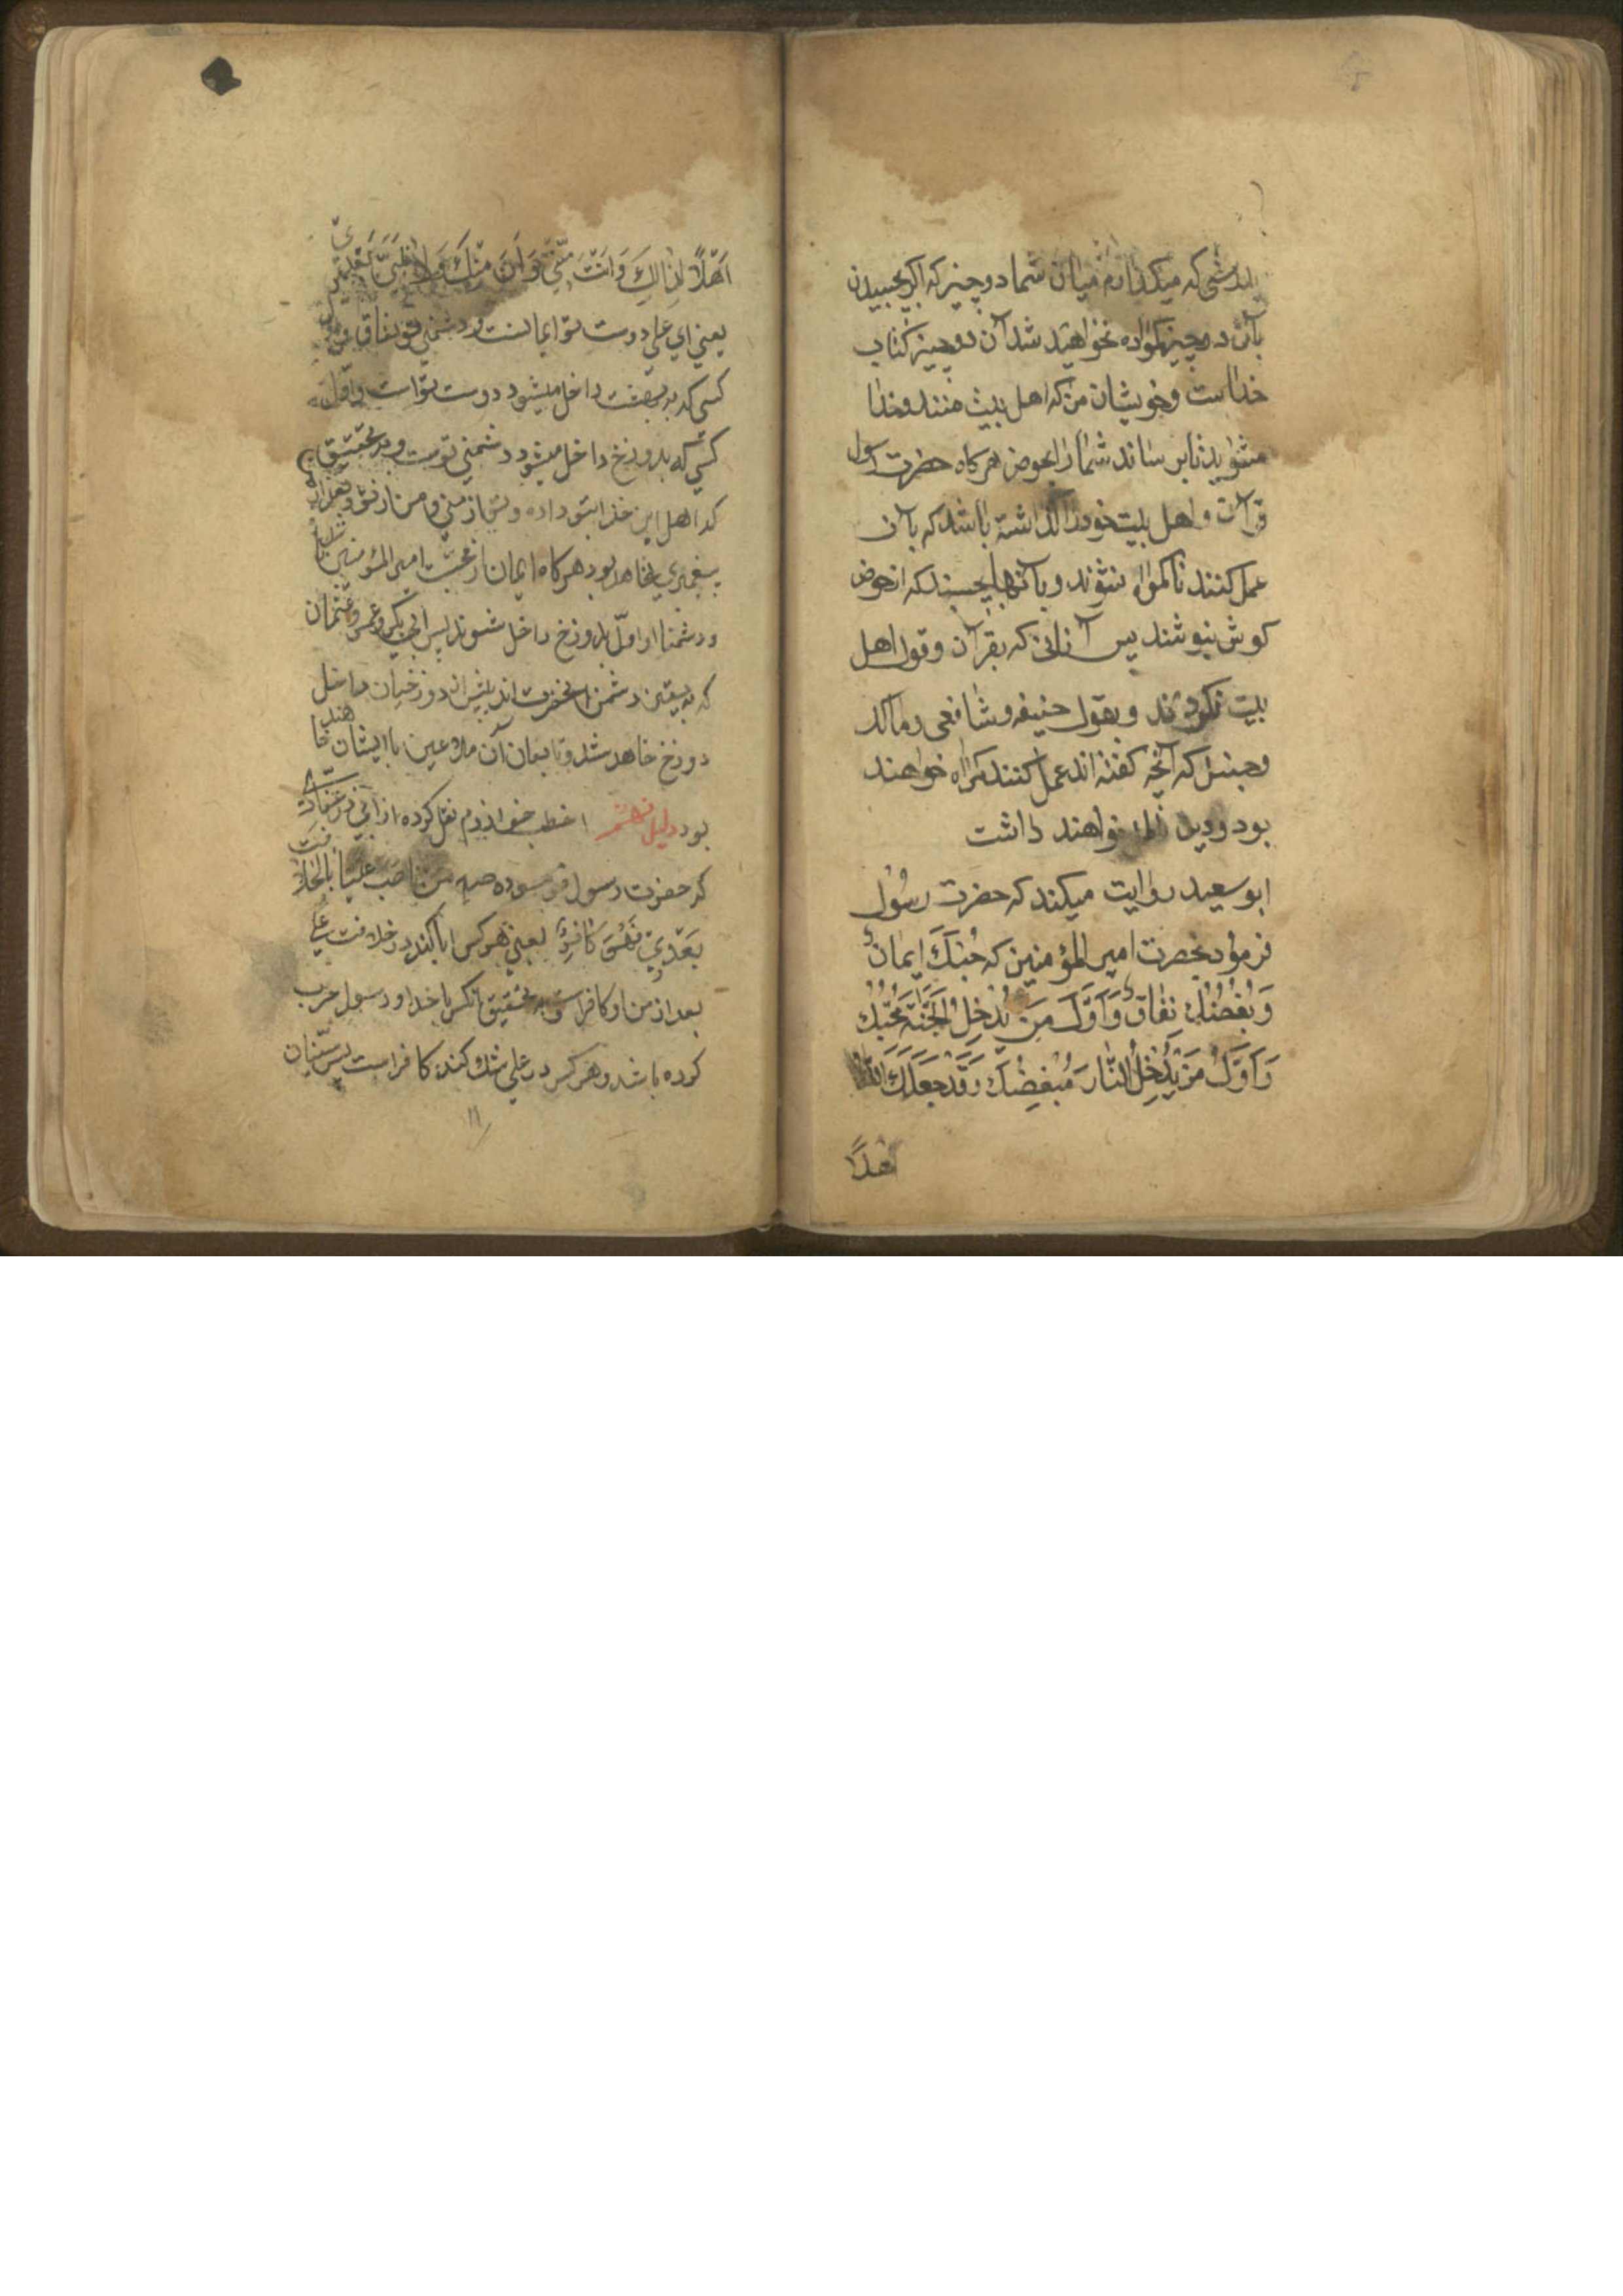 که میکذارم میان شما دو چیز که اکر بچسبیدن
بآن دو چیز کمراه نخواهید شد آن دو چیز کتاب
خداست و خویشان من که اهل بیت منند و خدا
شمارا بحوض هر کاه حضرت رسول
قرآن و اهل بیت خود را کذاشته باشد که بآن
عمل کنند تا کمراه نشوند و بآنها بچسبند که از حوض
کوثر بنوشند پس آنانی که بقرآن و قول اهل
بیت نکردند و بقول حنیفه و شافعی و مالک
و حنبل که آنچه کفته اند عمل کنند کمراه خواهند
بود و دین خواهند داشت
ابو سعید روایت میکند که حضرت رسُول
فرمود بحضرت امیر المؤمنین که حُبُّكَ اِیمانٌ
وَبُغْضُكَ نِفٰاقٌ وَاَوَّلُ مَنْ یَدْخِلُ الْجَنَّةَ مُحِبُّكَ
وَاَوَّلُ مَنْ یَدْخِلُ النّٰارَ مُبْغِضُكَ وَقَدْ جَعَلَكَ اللّٰهُ
اَهْلًا
اَهْلًا لِذٰالِكَ وَاَنْتَ مِنّی وَاَنَا مِنْكَ وَلا نَبِیَّ بَعْدی
یعنی ای علی دوست تو ایمانست و دشمنی تو نفاق و اول
کسی که به بهشت داخل میشود دوست تو است و اوّل
کسی که بدوزخ داخل میشود دشمنی تو ست و بتحقیق
که اهل این خدا بتو داده و تو از منی و من از تو و بعد از
پیغمبری نخاهد بود هر کاه ایمان از محبت امیر المؤمنین باشد
و دشمنا او اوّل بدوزخ داخل شوند پس ابی بکر و عمر و عثمان
که به یقین دشمن آنحضرت اند پیش از دوزخیان داخل
دوزخ خاهد شد و تابعان آن ملاعین با ایشان خاهند
بود دلیل هشتم اخطب خوارزم نقل کرده از ابی ذر غفاری
که حضرت رسول فرموده مَن ناصَبَ عَلیّاً بالْخِلافَت
بَعْدی فَهُوَ کٰافِرٌ یعنی هر کس ابا کند در خلافت علی
بعد از من او کافر است و به تحقیق آنکس با خدا و رسول حرب
کرده باشد و هر کس در علی شك کند کافر است پس سنیان
۱۱